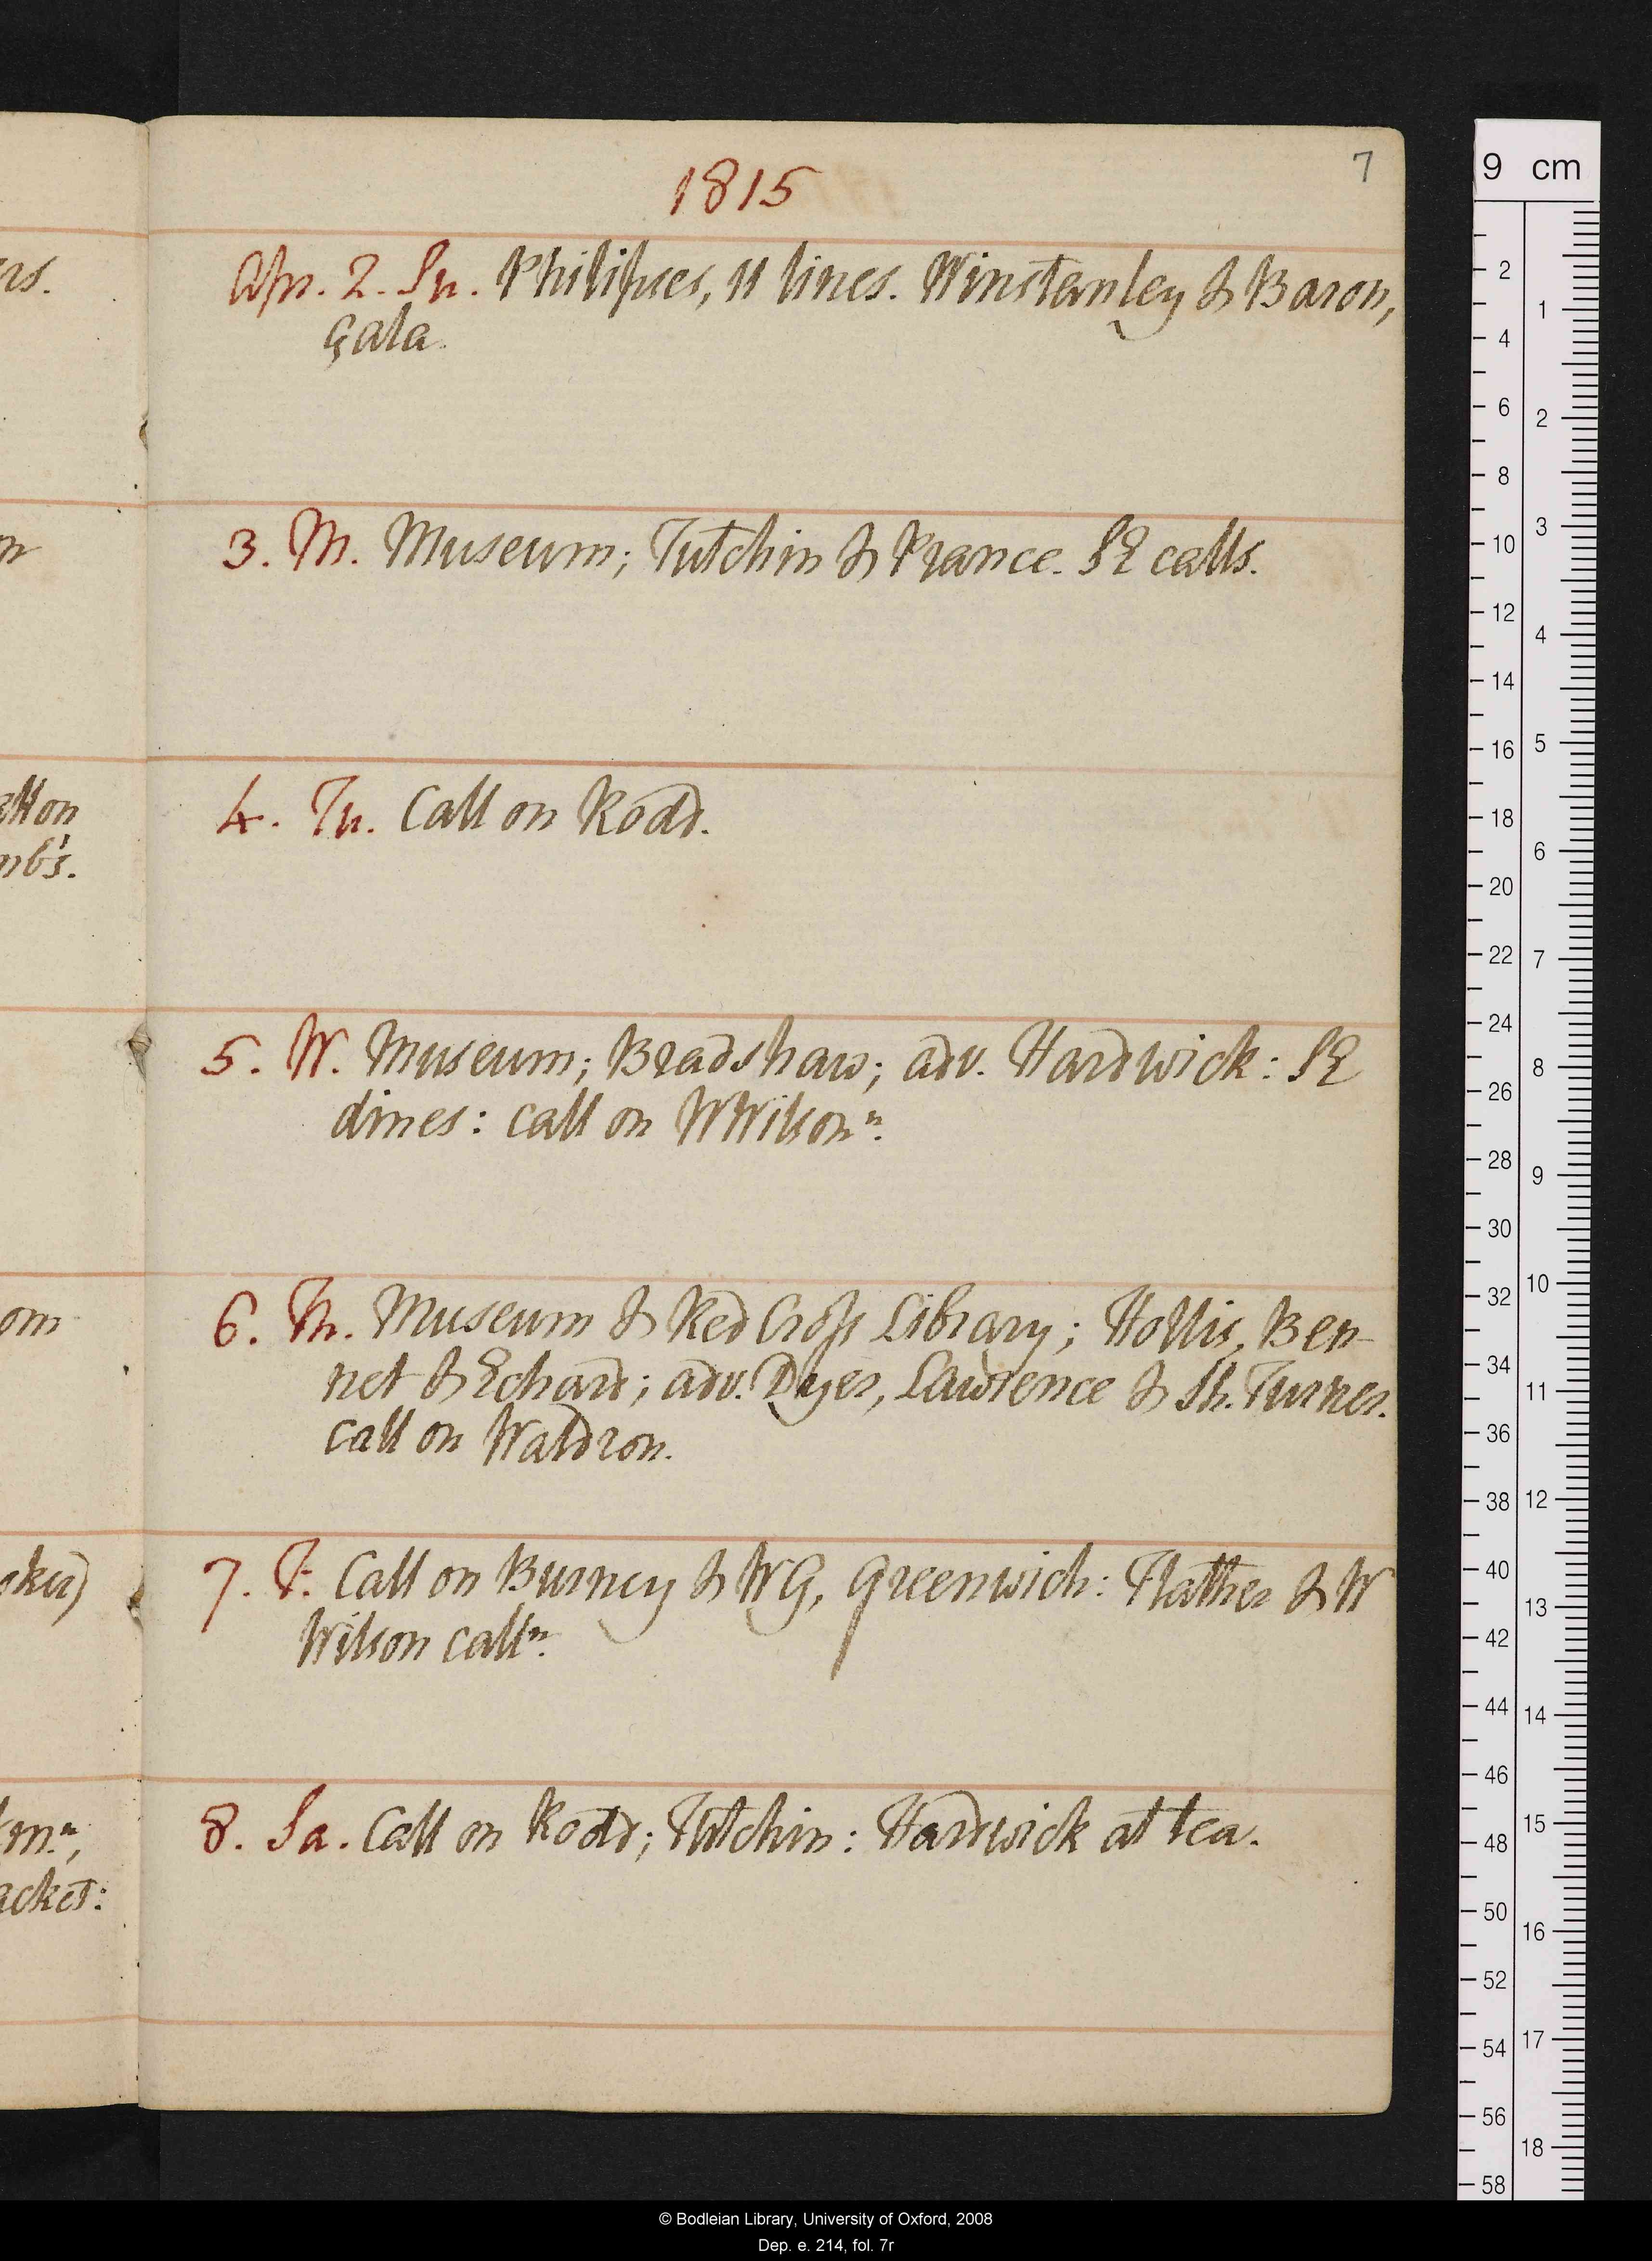 7
1815
Apr. 2. Su. Philipses, 11 lines. Winstanley & Baron,
Gala.
3. M. Museum; Tutchin & Prance. SE calls.
4. Tu. Call on Rodd.
5. W. Museum; Bradshaw; adv. Hardwick: SE
dines: call on WWilson ⁿ.
6. Th. Museum & Red Cross Library; Hollis, Ben-
net & Echard; adv. Dyer, Lawrence & Sh. Turner.
call on Waldron.
7. F. Call on Burney & WG, Greenwich: Flather & W
Wilson call ⁿ.
8. Sa. Call on Rodd; Tutchin: Hardwick at tea.
rs.
n
all on
mb's.
om
oker)
mⁿ,
acket:
9 cm
2
4
6
8
10
12
14
16
18
20
22
24
26
28
30
32
34
36
38
40
42
44
46
48
50
52
54
56
58
1
2
3
4
5
6
7
8
9
10
11
12
13
14
15
16
17
18
© Bodleian Library, University of Oxford, 2008
Dep. e. 214, fol. 7r